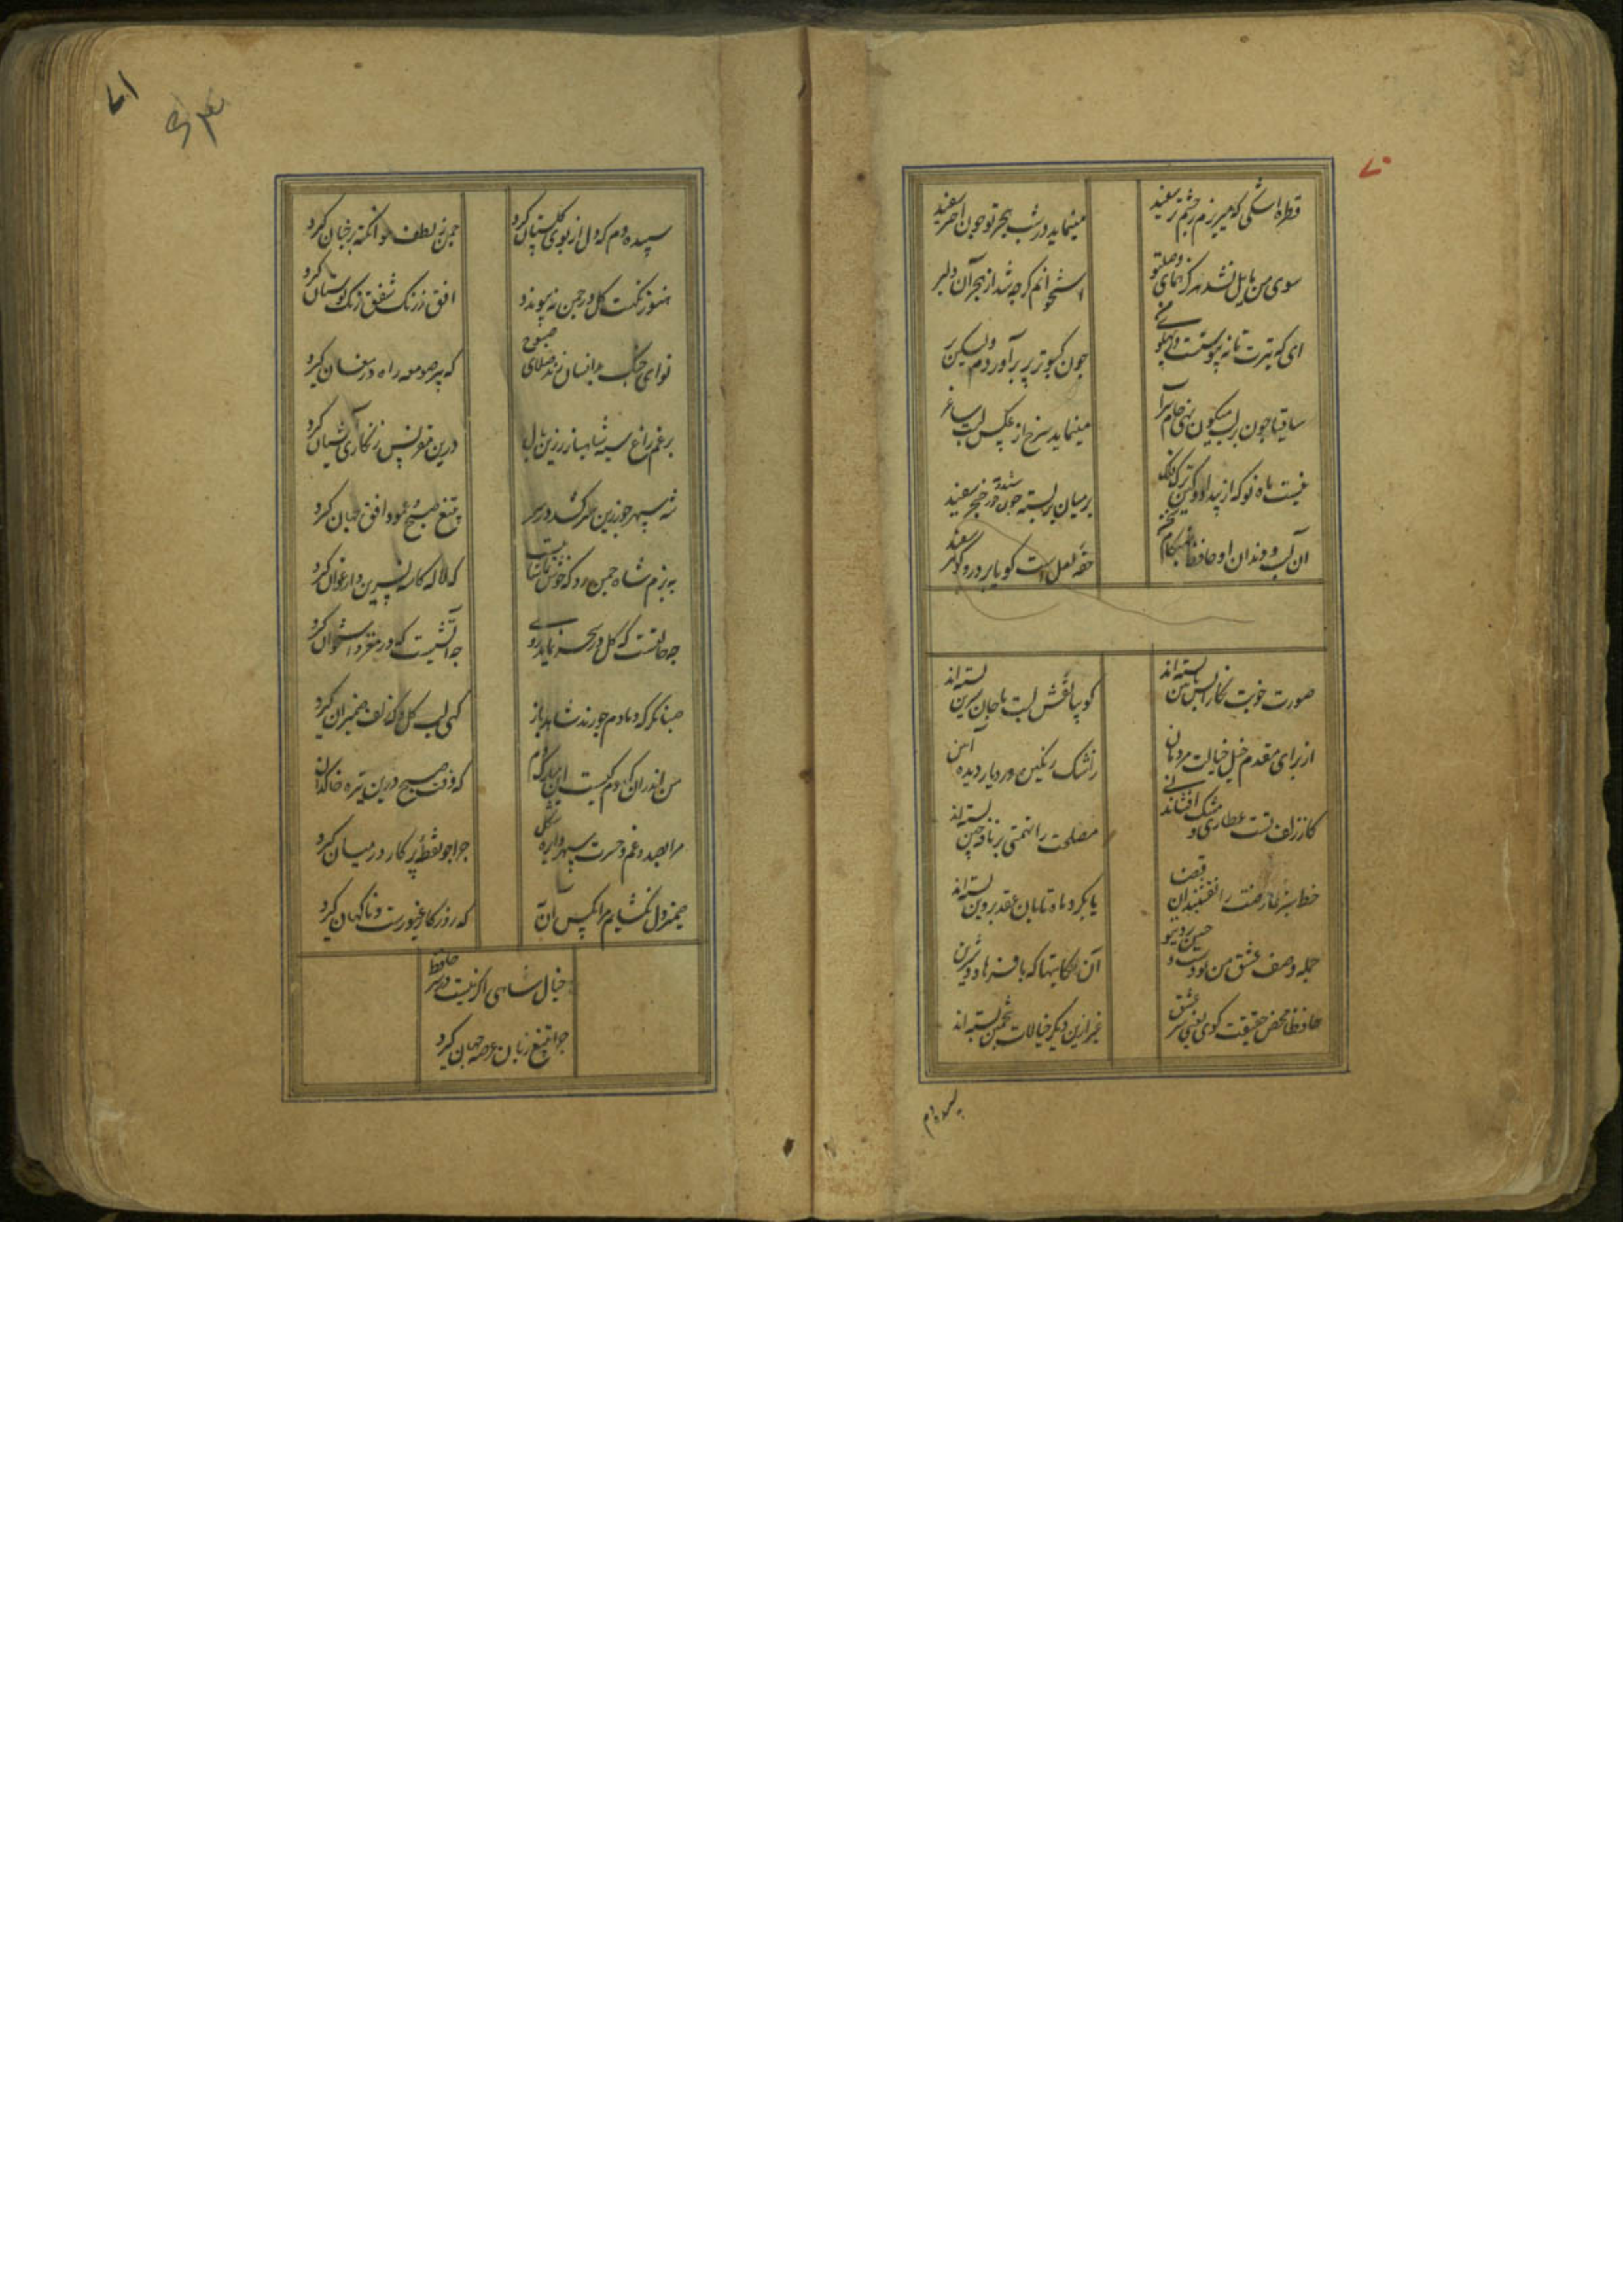 ۷۰
قطره اشکی که میریزم ز چشم تر سفید
مینماید در شب هجر تو چون اختر سفید
سوی من مایل نشد هرگز همای وصل تو
استخوانم گرچه شد از هجر آن دلبر
ای که تیرت تا نه پیوست در پهلو
چون کبوتر پر برآوردم ولیکن پر
ساقیا چون بر لب میگون نهی جام
مینماید سرخ از عکس لبت ساغر
نیست ماه نو که از بیداد و کین ترک فلک
بر میان بربسته چون خنجر سفید
آن لب و دندان او حافظ
حقه لعلست گویا پر در و گوهر سفید
صورت خوبت نگارا بسته اند
گوییا نقش لبت با جان شیرین بسته اند
از برای مقدم خیل خیالت مردمان
ز اشک رنگین در دیار دیده آیین
کار زلف تست عطاری و مشک افشانی
مصلحت را تهمتی بر نافه چین بسته اند
خط سبز عارضت را نقشبندان قضا
یا بگرد ماه تابان عقد پروین بسته اند
جمله وصف عشق من بودست و حسن روی تو
آن حکایتها که با فرهاد و شیرین
حافظا محض حقیقت گوی یعنی سر عشق
غیر ازین دیگر خیالات بتخمین بسته اند
سپیده دم
۷۱
سپیده دم که دل از بوی گلستان گیرد
چمن ز لطف هوا نکته بر جنان گیرد
هنوز نکهت گل در چمن نه پیوندد
افق ز رنگ شفق رنگ گلستان گیرد
نوای چنگ بدانسان زند صلای صبوح
که پیر صومعه راه در مغان گیرد
برغم زاغ سیه شاهباز زرین بال
درین مقرنس زنگاری آشیان گیرد
شه سپهر چو زرین سپر کشد در سر
بتیغ صبح عمود افق جهان گیرد
به بزم شاه چمن رو که خوش تماشاییست
که لاله کاسه نسرین و ارغوان گیرد
چه حالتست که گل در سحر نماید روی
چه آتشیست که در مغز استخوان گیرد
صبا نگر که دمادم چو رند شاهدباز
گهی لب گل و گه زلف ضیمران گیرد
من اندران که دم کیست این مبارک دم
که وقت صبح درین تیره خاکدان
مرا بصد غم و حسرت سپهر دایره شکل
چرا چو نقطه پرگار در میان گیرد
ضمیر دل نگشایم مرا بکس آن
که روزگار غیورست و ناگهان گیرد
خیال شاهی اگر نیست در سر حافظ
چرا بتیغ زبان عرصه جهان گیرد